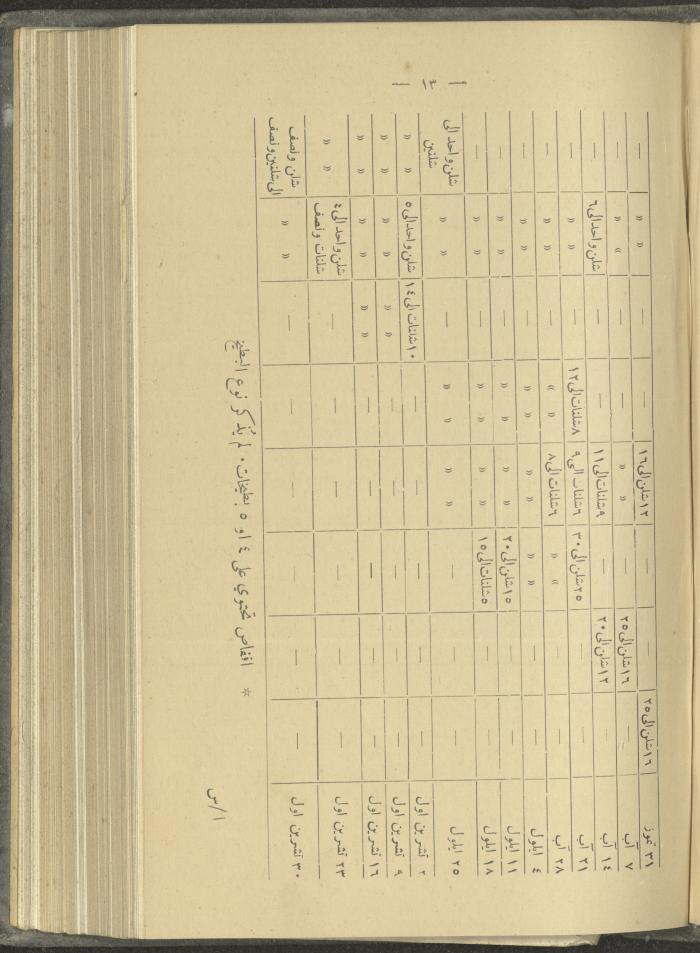 — ٤ —
٣١ تموز ١٦ شلن الى ٢٥ — — ١٢ شلن الى ١٦ — — » » —
٧ آب — ١٦ شلن الى ٢٥ — » » — — » » —
١٤ آب — ١٢ شلن الى ٢٠ — ٩ شلنات الى ١١ — — شلن واحد الى ٦ —
٢١ آب — — ٢٥ شلن الى ٣٠ ٦ شلنات الى ٩ ٨ شلنات الى ١٢ — » » —
٢٨ آب — — » » ٦ شلنات الى ٨ » » — » » —
٤ ايلول — — » » » » » » — » » —
١١ ايلول — — ١٥ شلن الى ٢٠ » » » » — » » —
١٨ ايلول — — ٥ شلنات الى ١٥ » » » » — » » —
٢٥ ايلول — — — » » » » — » » شلن واحد الى شلنين
٢ تشرين اول — — — — — ١٠ شلنات الى ١٤ شلن واحد الى ٥ » »
٩ تشرين اول — — — — — » » » » » »
١٦ تشرين اول — — — — — » » » » » »
٢٣ تشرين اول — — — — — — شلن واحد الى ٤ شلنات ونصف » »
٣٠ تشرين اول — — — — — — » » شلن ونصف الى شلنين ونصف
☆ اقفاص تحتوي على ٤ او ٥ بطيخات . لم يُذكر نوع البطيخ
ا/س